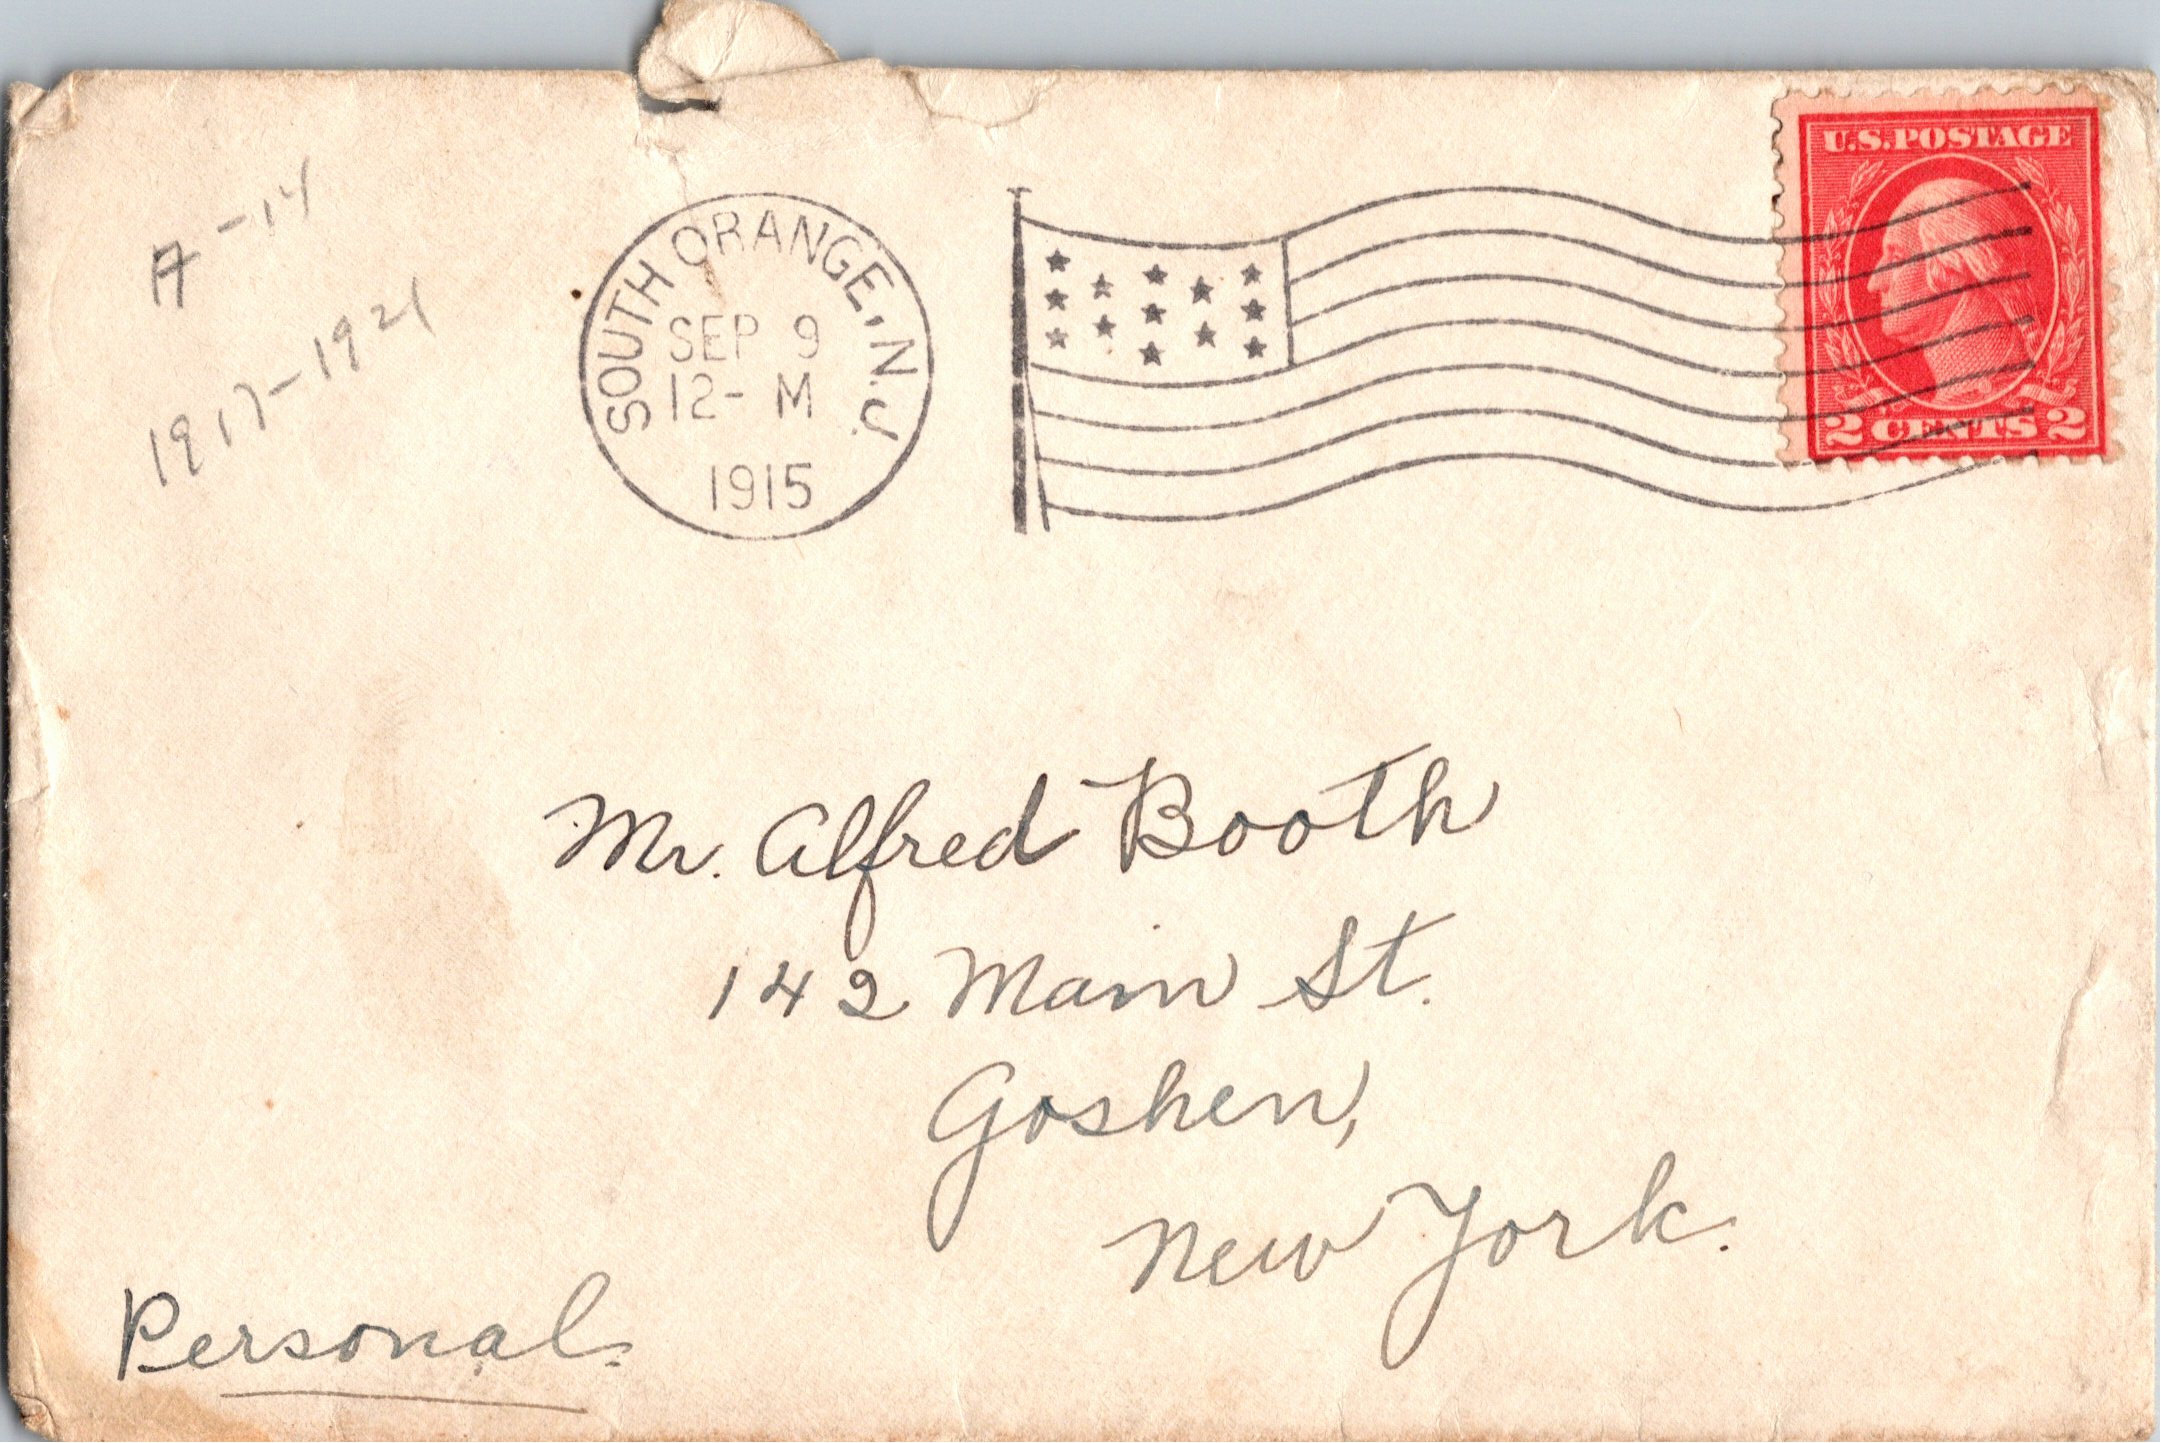 A-14
1917-1921
SOUTH ORANGE, N.J.
SEP 9
12- M
1915
U.S. POSTAGE
2 CENTS 2
Mr. Alfred Booth
142 Main St.
Goshen,
New York.
Personal.